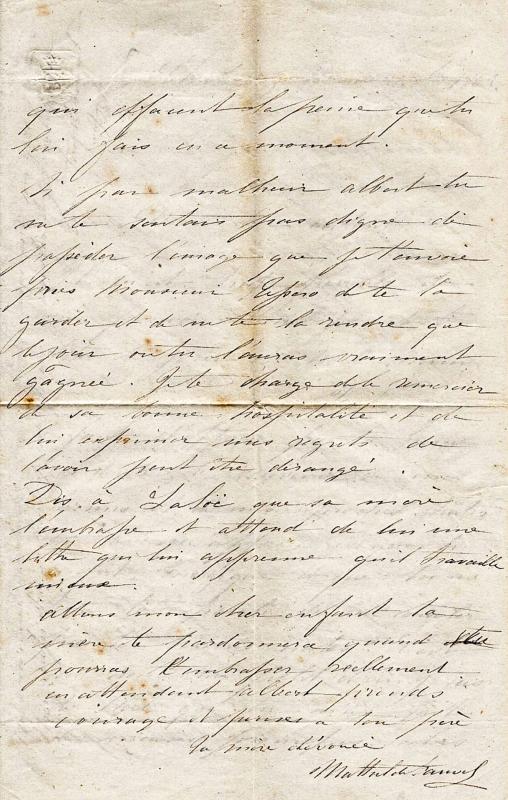 qui effacent la peine que tu
lui fais en ce moment.
Si par malheur albert tu
ne te sentais pas digne de
posséder l'image que je t'envoie
pries Monsieur de te la
garder et de ne te la rendre que
le jour ou tu l'auras vraiment
gagnée. Je te charge de le remercier
de sa bonne hospitalité et de
lui exprimer mes regrets de
l'avoir peut être dérangé.
Dis à que sa mère
l'embrasse et attend de lui une
lettre qui lui apprenne qu'il travaille
mieux.
allons mon cher enfant ta
mère te pardonnera quand tu
pourras l'embrasser réellement
en attendant albert prends
courage et penses a ton père
ta mère dévouée
Mathilde